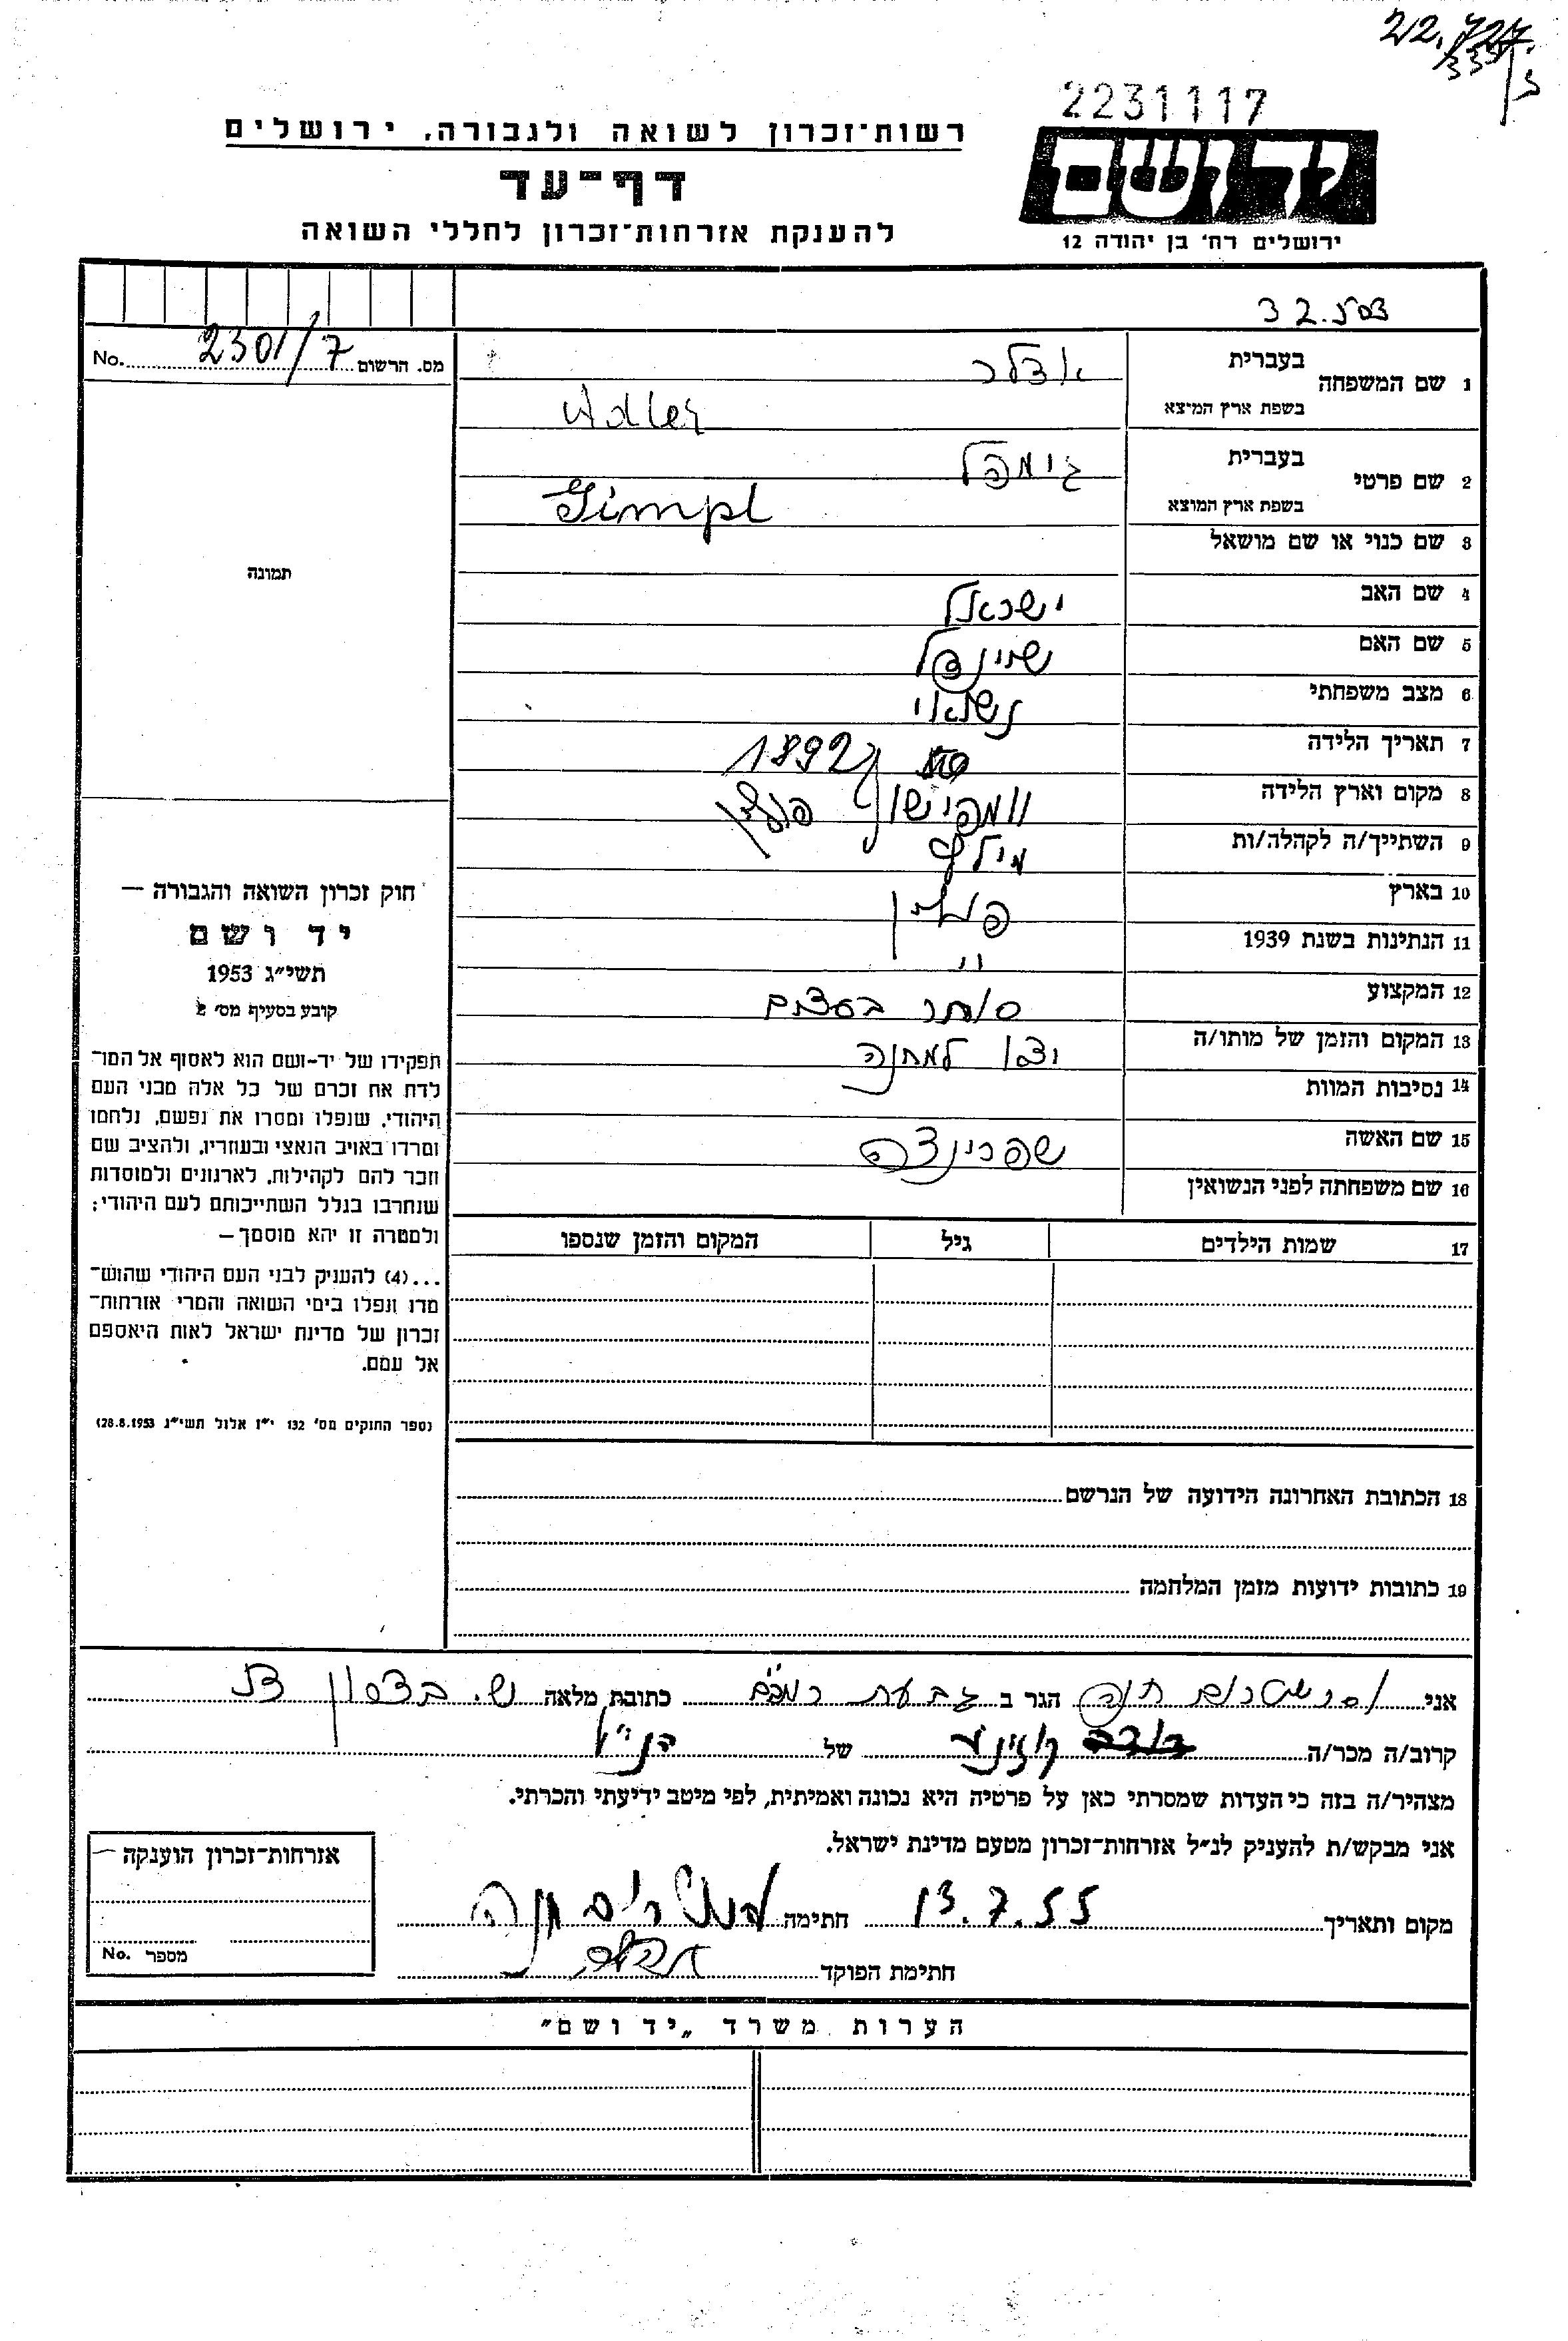 22.727.
335/3
2231117
רשות־זכרון לשואה ולגבורה, ירושלים
דף־עד
להענקת אזרחות־זכרון לחללי השואה
ידושם
ירושלים רח' בן יהודה 12
32.503
No. 2301/7 מס. הרשום
1 שם המשפחה בעברית אדלר
בשפת ארץ המיצא Adler
2 שם פרטי בעברית גימפל
בשפת ארץ המוצא Gimpl
3 שם כנוי או שם מושאל
תמונה
4 שם האב ישראל
5 שם האם שיינדל
6 מצב משפחתי נשאוי
7 תאריך הלידה 1892
8 מקום וארץ הלידה פולין
9 השתייך/ה לקהלה/ות
10 בארץ פולין
11 הנתינות בשנת 1939 "
12 המקצוע סוחר בעצים
13 המקום והזמן של מותו/ה למחנה
14 נסיבות המוות
15 שם האשה שפרינצה
16 שם משפחתה לפני הנשואין
17 שמות הילדים גיל המקום והזמן שנספו
חוק זכרון השואה והגבורה —
יד ושם
תשי״ג 1953
קובע בסעיף מס' 2
תפקידו של יד-ושם הוא לאסוף אל המו־
לדת את זכרם של כל אלה מבני העם
היהודי, שנפלו ומסרו את נפשם, נלחמו
ומרדו באויב הנאצי ובעוזריו, ולהציב שם
וזכר להם לקהילות, לארגונים ולמוסדות
שנחרבו בגלל השתייכותם לעם היהודי;
ולמטרה זו יהא מוסמך —
...(4) להעניק לבני העם היהודי שהוש־
מדו ונפלו בימי השואה והמרי אזרחות־
זכרון של מדינת ישראל לאות היאספם
אל עמם.
(ספר החוקים מס' 132 י״ז אלול תשי״ג 28.8.1953)
18 הכתובת האחרונה הידועה של הנרשם
19 כתובות ידועות מזמן המלחמה
אני חנה הגר ב גבעת רמב״ם כתובת מלאה ש.
קרוב/ה מכר/ה של הנ״ל
מצהיר/ה בזה כי העדות שמסרתי כאן על פרטיה היא נכונה ואמיתית, לפי מיטב ידיעתי והכרתי.
אני מבקש/ת להעניק לנ״ל אזרחות־זכרון מטעם מדינת ישראל.
מקום ותאריך 13.7.55 חתימה חנה
חתימת הפוקד
אזרחות־זכרון הוענקה —
No. מספר
הערות משרד „יד ושם"